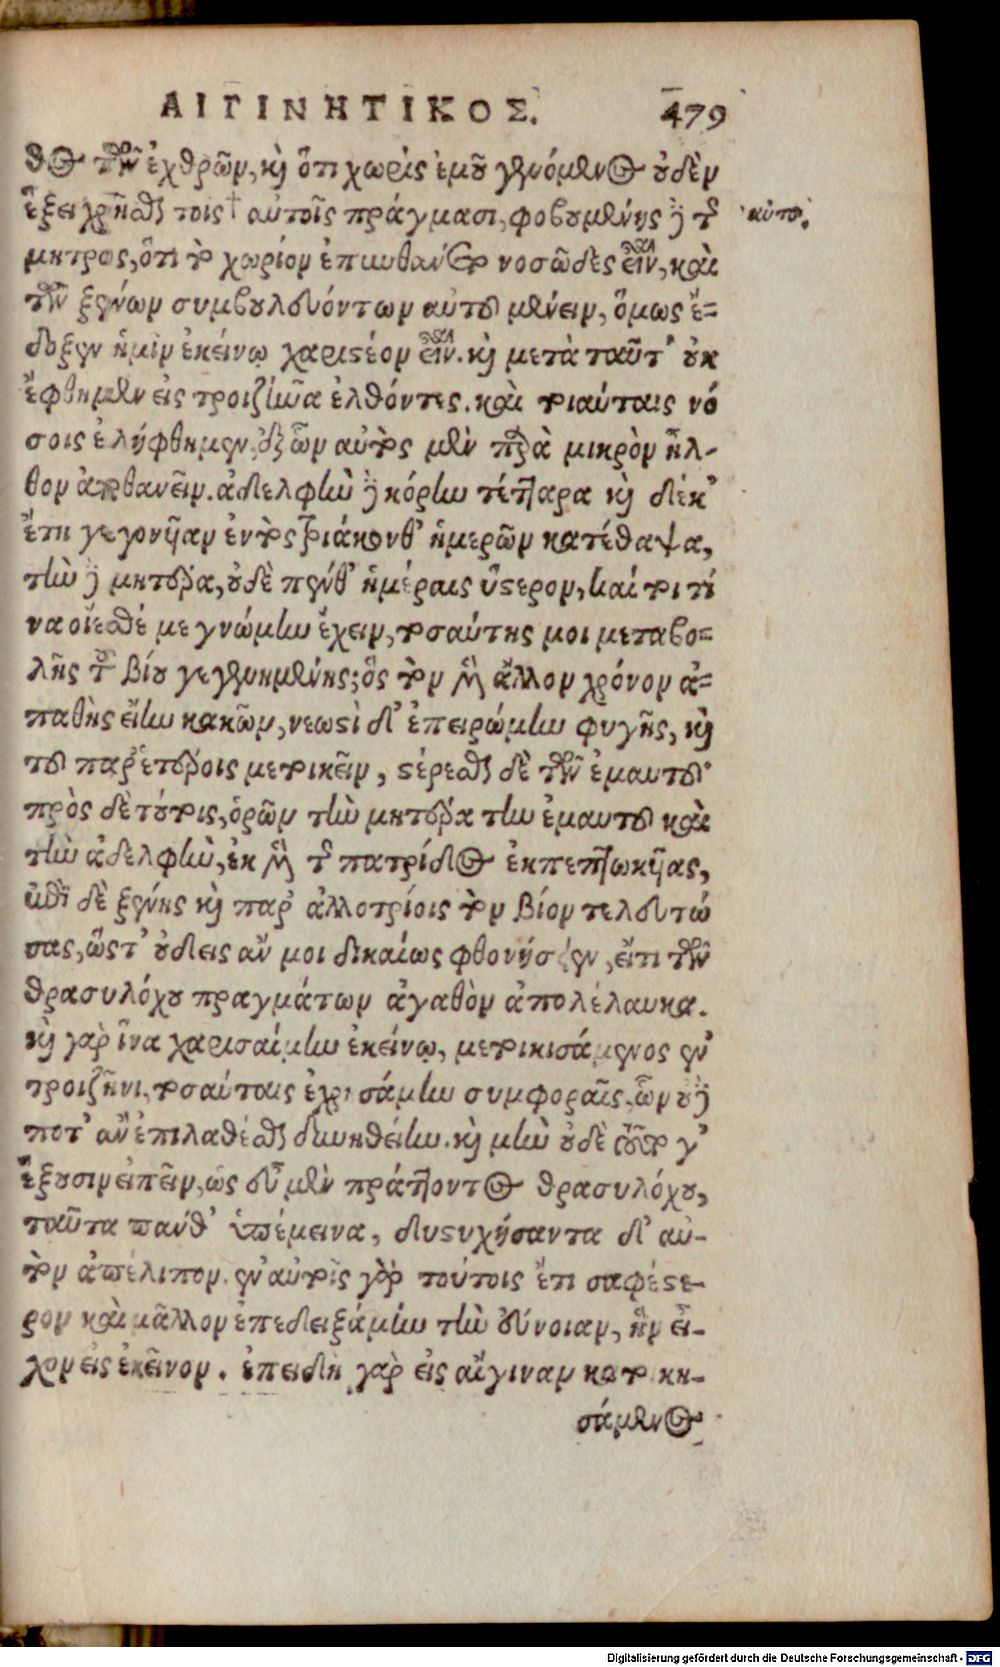 ΑΙΓΙΝΗΤΙΚΟΣ. 479
θος τῶν ἐχθρῶν, καὶ ὅτι χωρὶς ἐμοῦ γενόμενος οὐδὲν
ἕξει χρῆσθαι τοῖς † αὐτοῖς πράγμασι, φοβουμένης δὲ τῆς
αὐτοῦ.
μητρὸς, ὅτι τὸ χωρίον ἐπυνθάνετο νοσῶδες εἶναι, καὶ
τῶν ξένων συμβουλευόντων αὐτοῦ μένειν, ὅμως ἔ-
δοξεν ἡμῖν ἐκείνῳ χαριστέον εἶναι. καὶ μετὰ ταῦτ' οὐκ
ἔφθημεν εἰς τροιζῆνα ἐλθόντες. καὶ τοιαύταις νό
σοις ἐλήφθημεν, ἐξ ὧν αὐτὸς μὲν παρὰ μικρὸν ἦλ-
θον ἀποθανεῖν. ἀδελφὴν δὲ κόρην τέτταρα καὶ δέκ'
ἔτη γεγονῆαν ἐντὸς τριάκονθ' ἡμερῶν κατέθαψα,
τὴν δὲ μητέρα, οὐδὲ πένθ' ἡμέραις ὕστερον, καί τοι τί
να οἴεσθέ με γνώμην ἔχειν, τοσαύτης μοι μεταβο-
λῆς τοῦ βίου γεγενημένης; ὃς τὸν μὲν ἄλλον χρόνον ἀ-
παθὴς εἴην κακῶν, νεωστὶ δ' ἐπειρώμην φυγῆς, καὶ
τοῦ παρ' ἑτέροις μετοικεῖν, στέρεσθαι δὲ τῶν ἐμαυτοῦ·
πρὸς δὲ τούτοις, ὁρῶν τὴν μητέρα τὴν ἐμαυτοῦ καὶ
τὴν ἀδελφὴν, ἐκ μὲν τῆς πατρίδος ἐκπεπτωκῆας,
ἐπὶ δὲ ξένης καὶ παρ' ἀλλοτρίοις τὸν βίον τελευτώ
σας, ὥστ' οὐδεὶς ἄν μοι δικαίως φθονήσειεν, εἴ τι τῶν
θρασυλόχου πραγμάτων ἀγαθὸν ἀπολέλαυκα.
καὶ γὰρ ἵνα χαρισαίμην ἐκείνῳ, μετοικισάμενος ἐν
τροιζῆνι, τοσαύταις ἐχρησάμην συμφοραῖς, ὧν οὐδέ
ποτ' ἂν ἐπιλαθέσθαι δυνηθείην. καὶ μὴν οὐδὲ τοῦτο γ'
ἕξουσιν εἰπεῖν, ὡς εὖ μὲν πράττοντος θρασυλόχου,
ταῦτα πάνθ' ὑπέμεινα, δυστυχήσαντα δ' αὐ-
τὸν ἀπέλιπον. ἐν αὐτοῖς γὰρ τούτοις ἔτι σαφέστε-
ρον καὶ μᾶλλον ἐπεδειξάμην τὴν εὔνοιαν, ἣν εἶ-
χον εἰς ἐκεῖνον. ἐπειδὴ γὰρ εἰς αἴγιναν κατοικη-
σάμενος
Digitalisierung gefördert durch die Deutsche Forschungsgemeinschaft - DFG